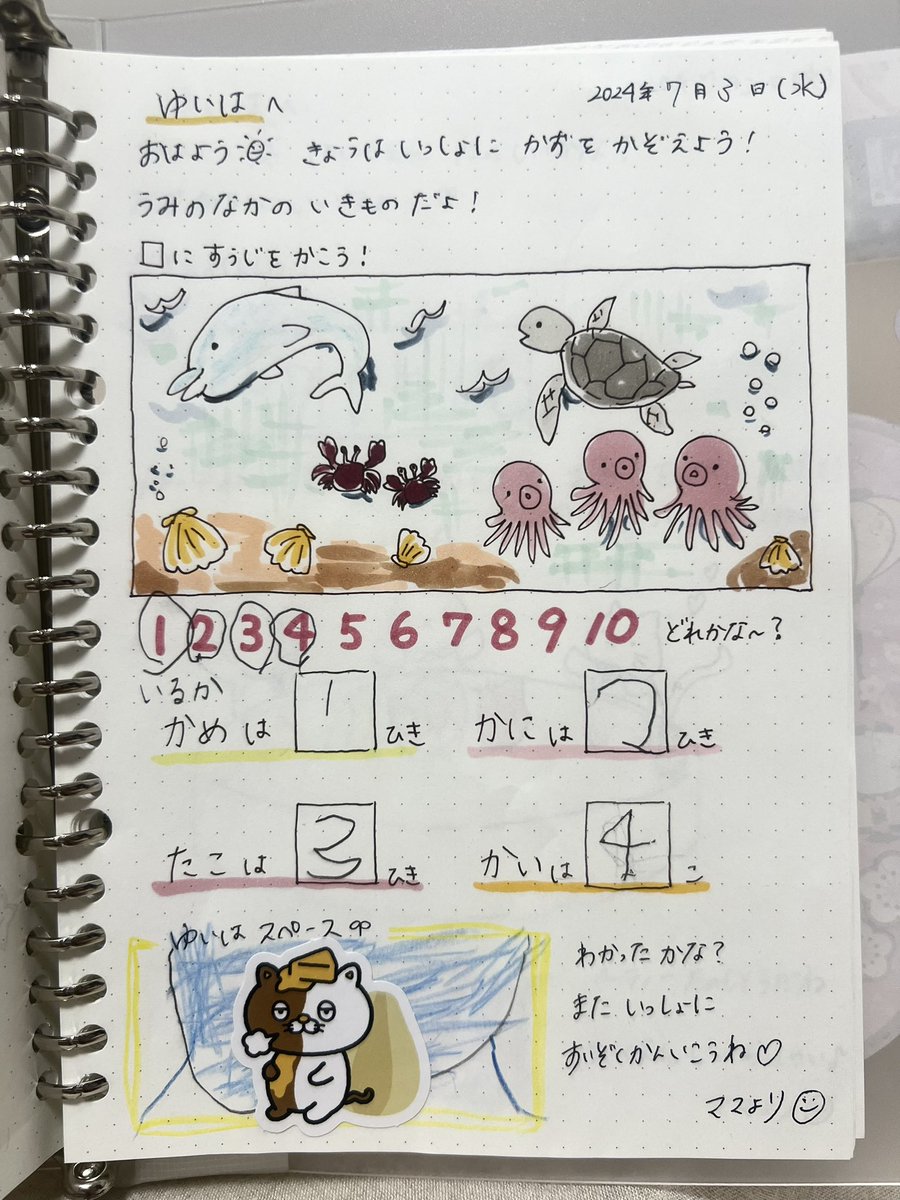 ゆいはへ
2024年7月3日(水)
おはよう きょうは いっしょに かずを かぞえよう!
うみのなかの いきものだよ!
□に すうじを かこう!
1 2 3 4 5 6 7 8 9 10 どれかな~?
いるか
かめは 1 ひき かには 2 ひき
たこは 3 ひき かいは 4 こ
ゆいは スペース
わかったかな?
また いっしょに
すいぞくかんいこうね♡
ママより